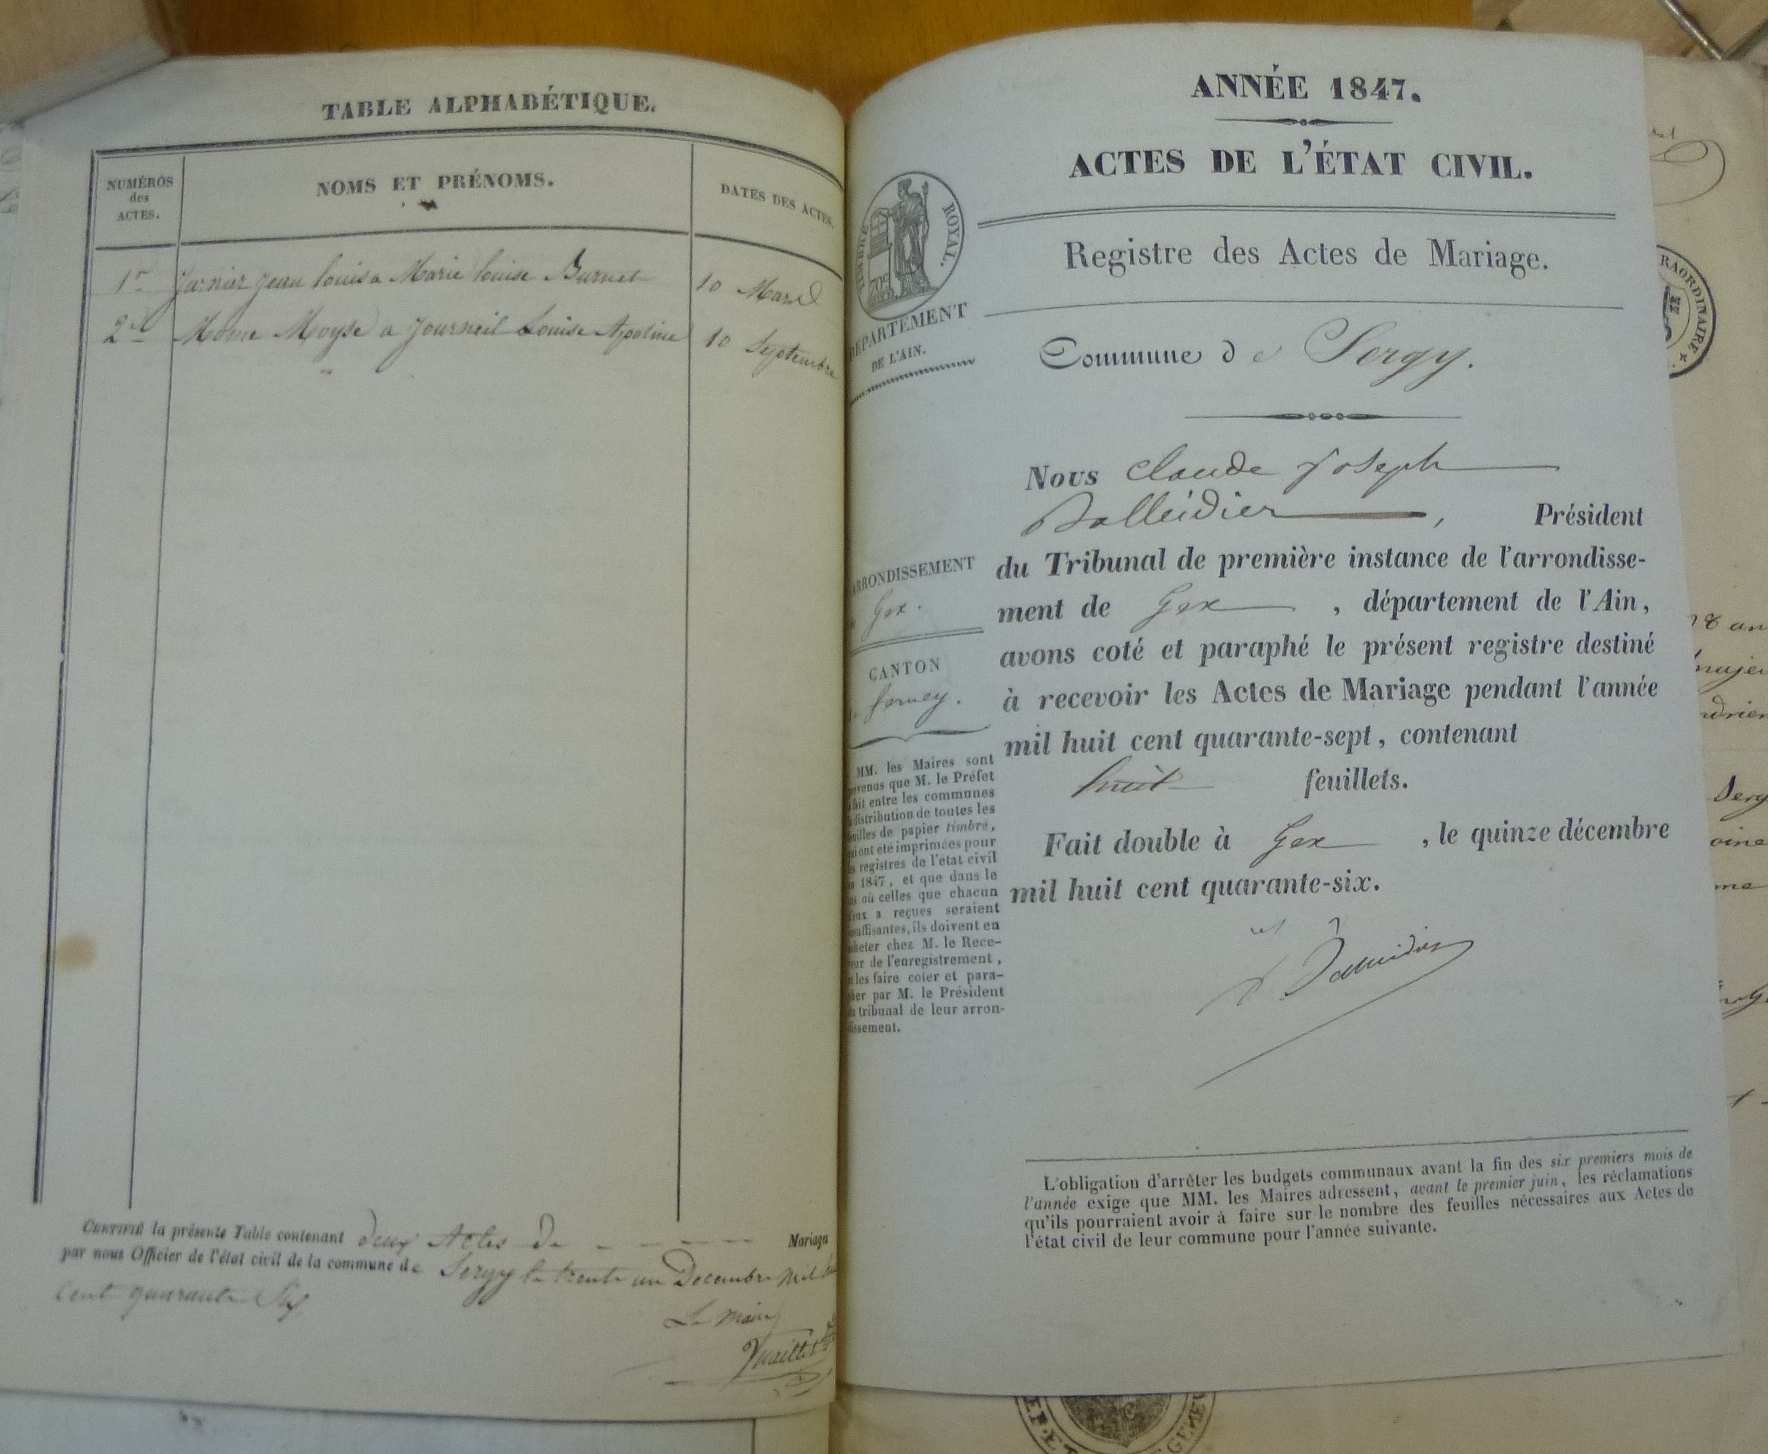 TABLE ALPHABÉTIQUE.
NUMÉROS
des
ACTES.
NOMS ET PRÉNOMS.
DATES DES ACTES.
1er Jean louis a Marie louise Burnet 10 Mars
2d Moyse a Journeil Louise Apoline 10 Septembre
CERTIFIÉ la présente Table contenant deux Actes de Mariage
par nous Officier de l'état civil de la commune de Sergy le trente un Decembre mil
cent quarante Six
Le maire
ANNÉE 1847.
ACTES DE L'ÉTAT CIVIL.
TIMBRE ROYAL.
70c
DÉPARTEMENT
DE L'AIN.
Registre des Actes de Mariage.
Commune de Sergy.
Nous Claude Joseph
Balleidier, Président
du Tribunal de première instance de l'arrondisse-
ment de Gex, département de l'Ain,
avons coté et paraphé le présent registre destiné
à recevoir les Actes de Mariage pendant l'année
mil huit cent quarante-sept, contenant
huit feuillets.
Fait double à Gex, le quinze décembre
mil huit cent quarante-six.
ARRONDISSEMENT
Gex.
CANTON
ferney.
MM. les Maires sont
que M. le Préfet
fait entre les communes
distribution de toutes les
feuilles de papier timbré,
qui ont été imprimées pour
les registres de l'état civil
1847, et que dans le
cas où celles que chacun
d'eux a reçues seraient
insuffisantes, ils doivent en
acheter chez M. le Rece-
veur de l'enregistrement,
les faire coter et para-
pher par M. le Président
du tribunal de leur arron-
dissement.
L'obligation d'arrêter les budgets communaux avant la fin des six premiers mois de
l'année exige que MM. les Maires adressent, avant le premier juin, les réclamations
qu'ils pourraient avoir à faire sur le nombre des feuilles nécessaires aux Actes de
l'état civil de leur commune pour l'année suivante.
RAORDINAIRE